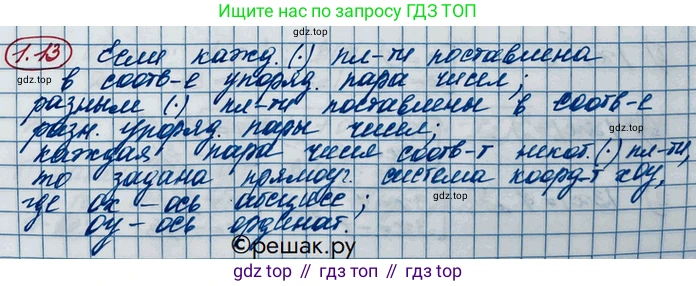 Ищите нас по запросу ГДЗ ТОП
1.13 Если кажд. (·) пл-ти поставлена
в соотв-е упоряд. пара чисел;
разным (·) пл-ти поставлены в соотв-е
разн. упоряд. пары чисел;
каждая пара чисел соотв-т некот. (·) пл-ти,
то задана прямоуг. система коорд-т xOy,
где ox - ось абсцисс;
oy - ось ординат.
©решак.ру
gdz.top // гдз.топ // gdz.top // гдз.топ
gdz.top
gdz.top
gdz.top
gdz.top
gdz.top